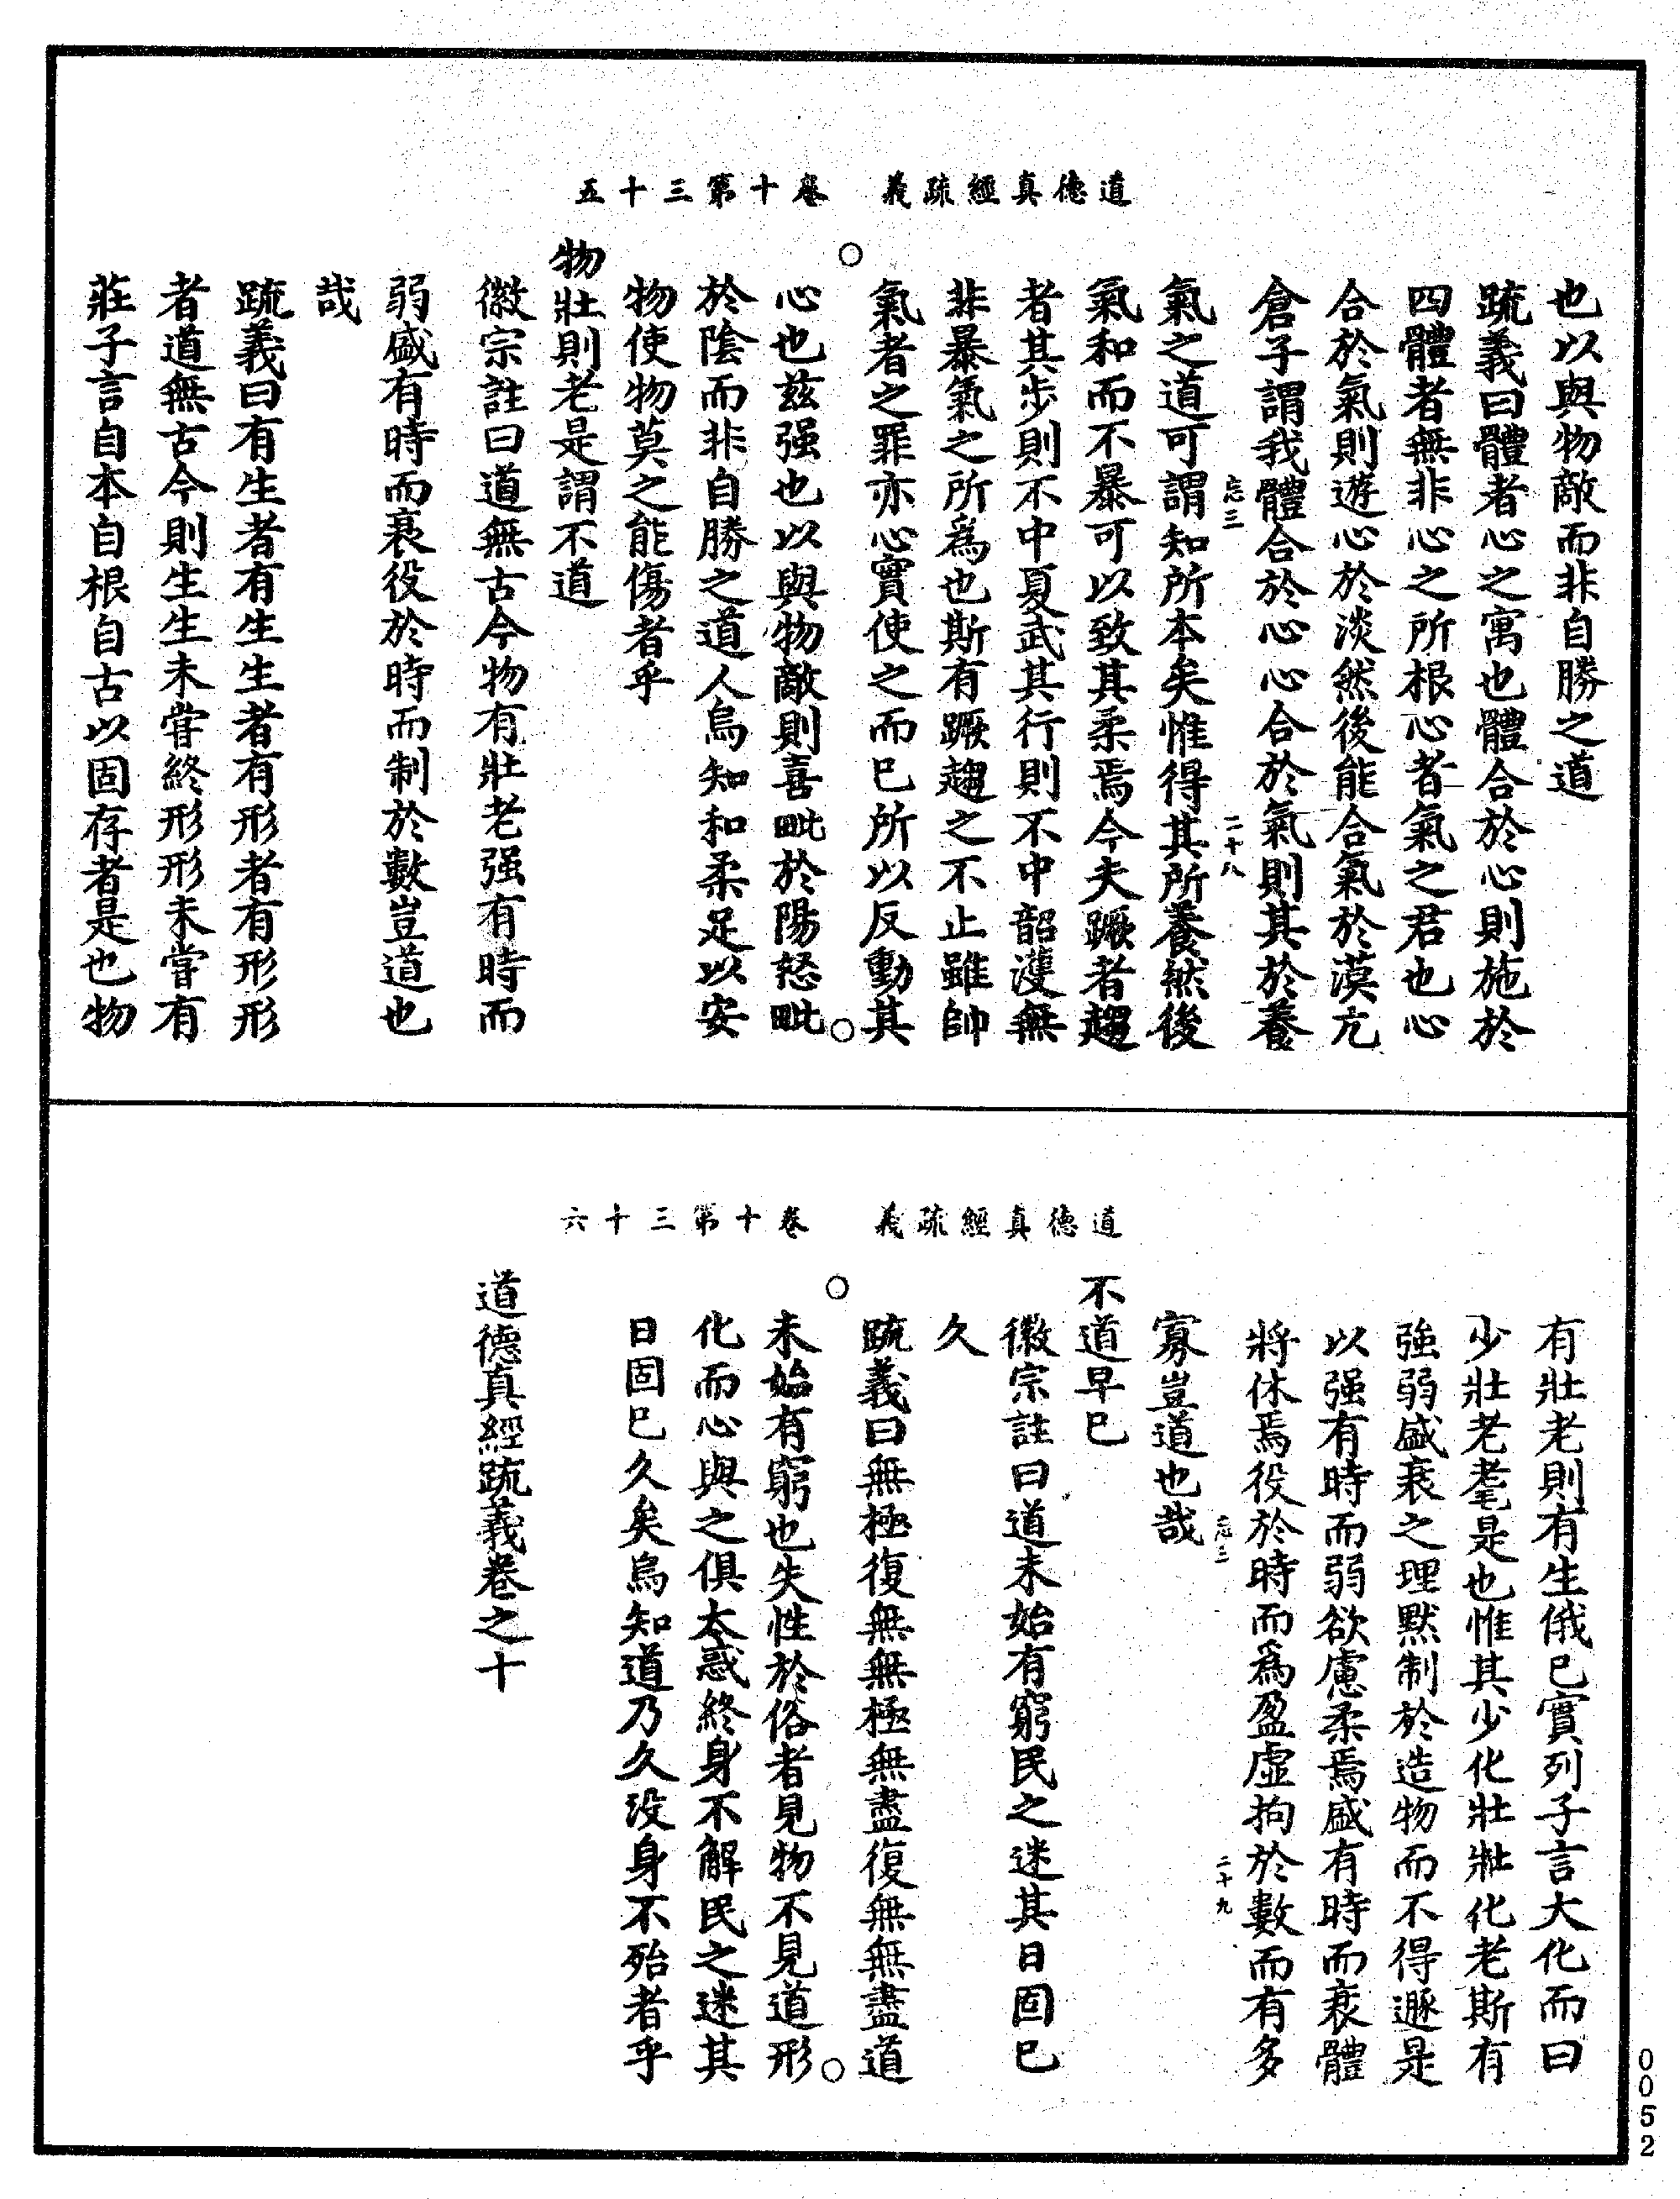 道德真經疏義　卷十第三十五
也以與物敵而非自勝之道
䟽義曰體者心之寓也體合於心則施於
四體者無非心之所根心者氣之君也心
合於氣則遊心於淡然後能合氣於漠亢
倉子謂我體合於心心合於氣則其於養
忘三　二十八
氣之道可謂知所本矣惟得其所養然後
氣和而不暴可以致其柔焉今夫蹶者趨
者其步則不中夏武其行則不中韶濩無
非暴氣之所爲也斯有蹶趨之不止雖帥
氣者之罪亦心實使之而已所以反動其
心也兹强也以與物敵則喜毗於陽怒毗
於陰而非自勝之道人烏知和柔足以安
物使物莫之能傷者乎
物壯則老是謂不道
徽宗註曰道無古今物有壯老强有時而
弱盛有時而衰役於時而制於數豈道也
哉
䟽義曰有生者有生生者有形者有形形
者道無古今則生生未甞終形形未甞有
莊子言自本自根自古以固存者是也物
道德真經疏義　卷十第三十六
有壯老則有生俄已實列子言大化而曰
少壯老耄是也惟其少化壯壯化老斯有
強弱盛衰之理默制於造物而不得遯是
以强有時而弱欲慮柔焉盛有時而衰體
將休焉役於時而爲盈虛拘於數而有多
忘三　二十九
寡豈道也哉
不道早已
徽宗註曰道未始有窮民之迷其日固已
久
䟽義曰無極復無無極無盡復無無盡道
未始有窮也失性於俗者見物不見道形
化而心與之俱大惑終身不解民之迷其
日固已久矣烏知道乃久没身不殆者乎
道德真經䟽義卷之十
0052